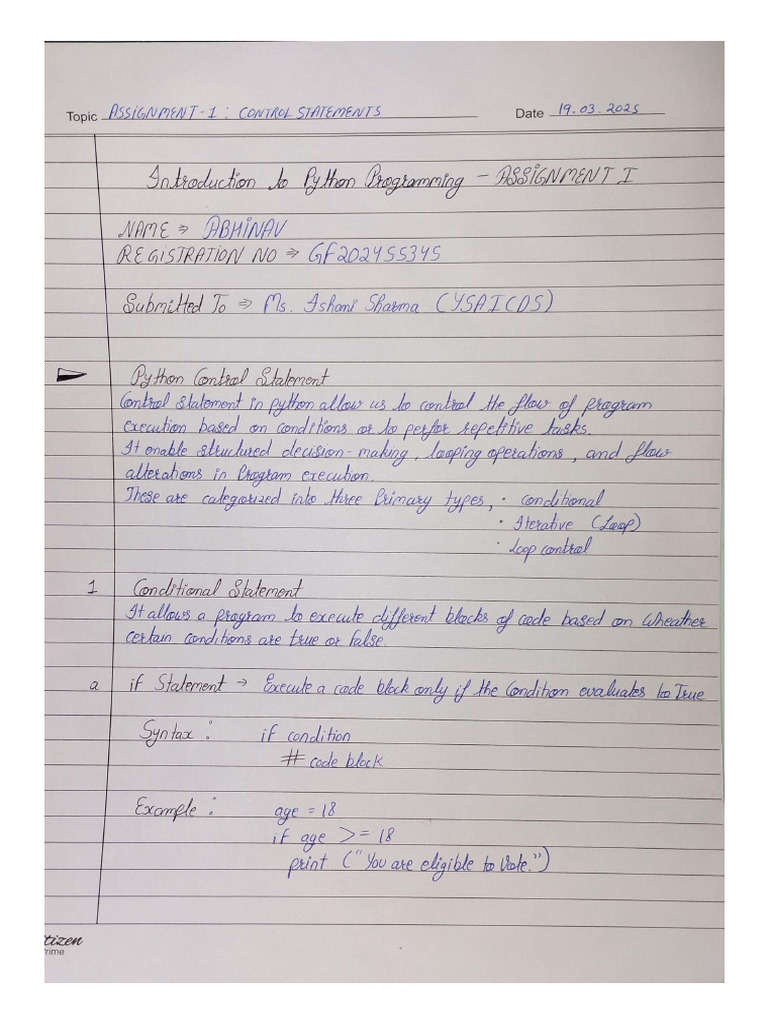 Topic ASSIGNMENT-1 : CONTROL STATEMENTS Date 19.03.2025
Introduction to Python Programming - ASSIGNMENT I
NAME ⇒ ABHINAV
REGISTRATION NO ⇒ GF202455345
Submitted To ⇒ Ms. Ishani Sharma (YSAICDS)
Python Control Statement
Control statement in python allow us to control the flow of program
execution based on conditions or to perfor repetitive tasks.
It enable structured decision-making, looping operations, and flow
alterations in Program execution.
These are categorized into three Primary types, · conditional
· Iterative (Loop)
· Loop control
1 Conditional Statement
It allows a program to execute different blocks of code based on Wheather
certain conditions are true or false.
a if Statement → Execute a code block only if the Condition evaluates to True
Syntax : if condition
# code block
Example : age = 18
if age >= 18
print ("You are eligible to Vote.")
tizen
rime